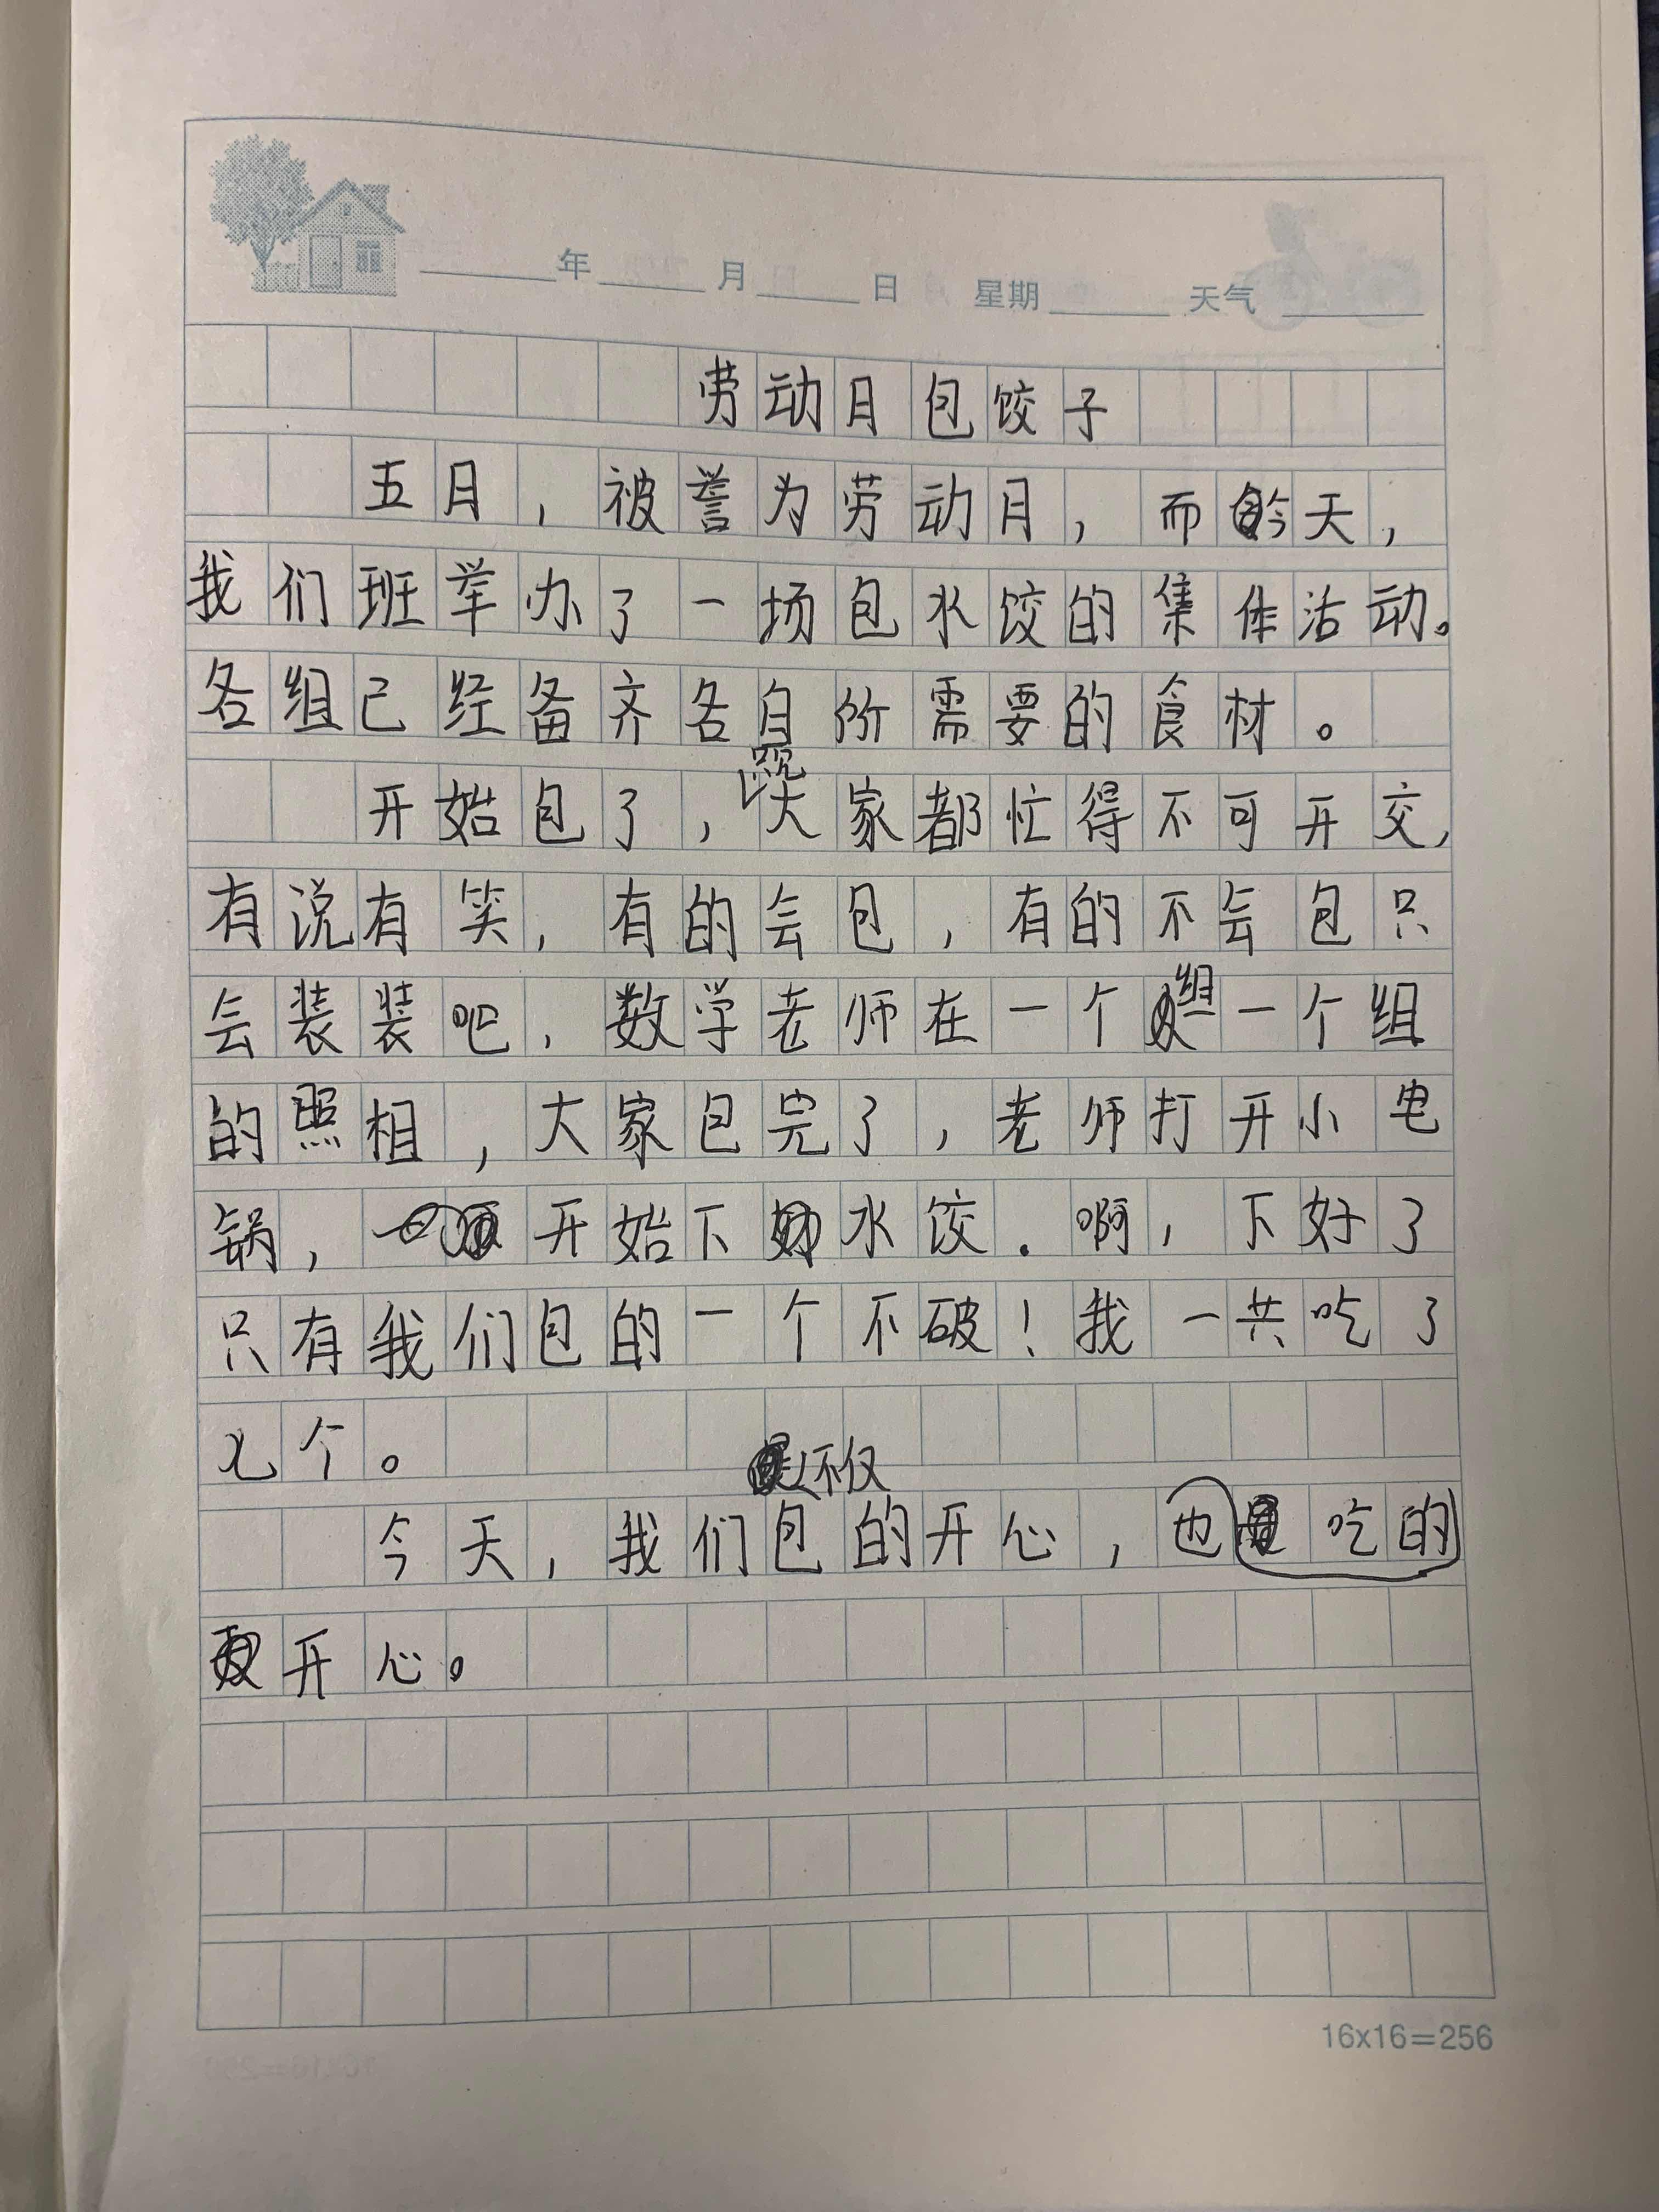 年 月 日 星期 天气
劳动月包饺子
五月，被誉为劳动月，而今天，
我们班举办了一场包水饺的集体活动。
各组已经备齐各自所需要的食材。
开始包了，大家都忙得不可开交，
有说有笑，有的会包，有的不会包只
会装装吧，数学老师在一个组一个组
的照相，大家包完了，老师打开小电
锅，开始下水饺．啊，下好了
只有我们包的一个不破！我一共吃了
七个。
今天，我们不仅包的开心，也吃的
开心。
16x16=256